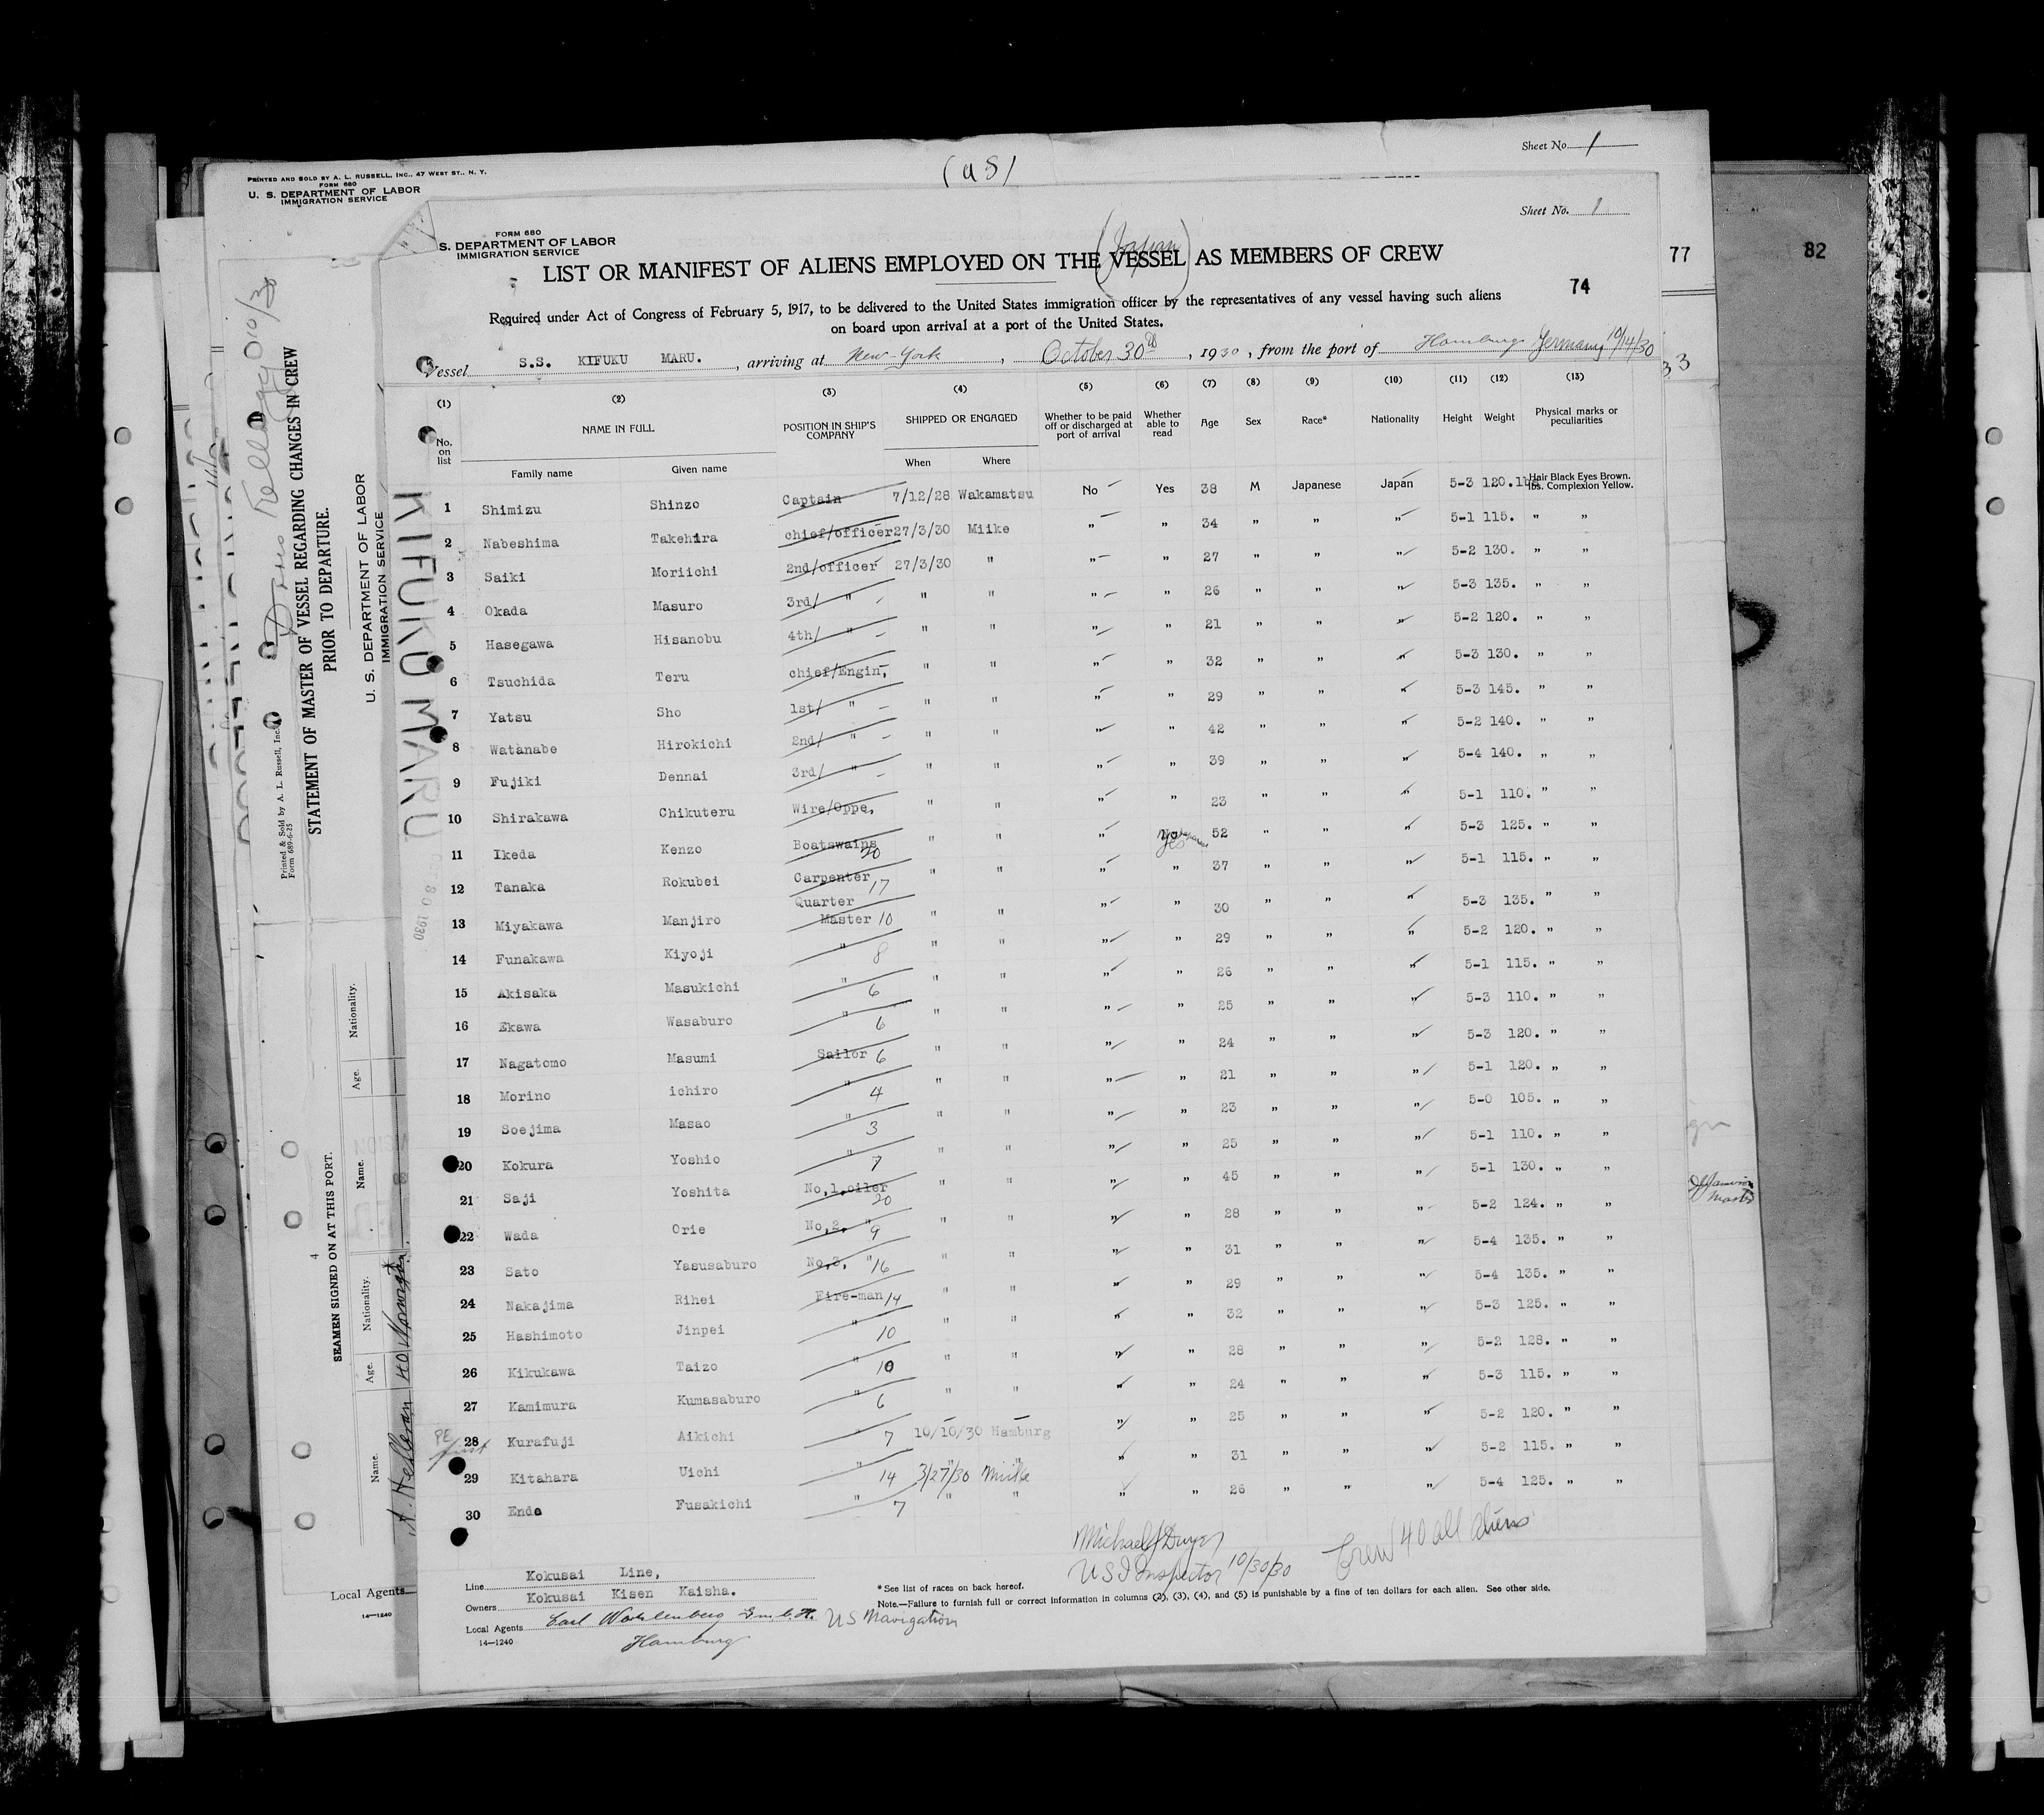 Sheet No. 1
(US)
PRINTED AND SOLD BY A. L. RUSSELL, INC., 47 WEST ST., N. Y.
FORM 680
U. S. DEPARTMENT OF LABOR
IMMIGRATION SERVICE
Sheet No. 1
FORM 680
S. DEPARTMENT OF LABOR
IMMIGRATION SERVICE
(Japan)
LIST OR MANIFEST OF ALIENS EMPLOYED ON THE VESSEL AS MEMBERS OF CREW
77
82
74
Required under Act of Congress of February 5, 1917, to be delivered to the United States immigration officer by the representatives of any vessel having such aliens
on board upon arrival at a port of the United States.
Vessel S.S. KIFUKU MARU. , arriving at New York , October 30th , 1930 , from the port of Hamburg Germany 10/14/30
33
(1) (2) (3) (4) (5) (6) (7) (8) (9) (10) (11) (12) (13)
No. on list NAME IN FULL POSITION IN SHIP'S COMPANY SHIPPED OR ENGAGED Whether to be paid off or discharged at port of arrival Whether able to read Age Sex Race* Nationality Height Weight Physical marks or peculiarities
Family name Given name When Where
1 Shimizu Shinzo Captain 7/12/28 Wakamatsu No Yes 38 M Japanese Japan 5-3 120.lbs. Hair Black Eyes Brown. Complexion Yellow.
2 Nabeshima Takehira chief/officer 27/3/30 Miike " " 34 " " " 5-1 115. " "
3 Saiki Moriichi 2nd/officer 27/3/30 " " " 27 " " " 5-2 130. " "
4 Okada Masuro 3rd/ " " " " " 26 " " " 5-3 135. " "
5 Hasegawa Hisanobu 4th/ " " " " " 21 " " " 5-2 120. " "
6 Tsuchida Teru chief/Engin, " " " " 32 " " " 5-3 130. " "
7 Yatsu Sho 1st/ " " " " " 29 " " " 5-3 145. " "
8 Watanabe Hirokichi 2nd/ " " " " " 42 " " " 5-2 140. " "
9 Fujiki Dennai 3rd/ " " " " " 39 " " " 5-4 140. " "
10 Shirakawa Chikuteru Wire/Oppe, " " " " 23 " " " 5-1 110. " "
11 Ikeda Kenzo Boatswains 20 " " " Yes 52 " " " 5-3 125. " "
12 Tanaka Rokubei Carpenter 17 " " " " 37 " " " 5-1 115. " "
13 Miyakawa Manjiro Quarter Master 10 " " " " 30 " " " 5-3 135. " "
14 Funakawa Kiyoji " 8 " " " " 29 " " " 5-2 120. " "
15 Akisaka Masukichi " 6 " " " " 26 " " " 5-1 115. " "
16 Ekawa Wasaburo " 6 " " " " 25 " " " 5-3 110. " "
17 Nagatomo Masumi Sailor 6 " " " " 24 " " " 5-3 120. " "
18 Morino ichiro " 4 " " " " 21 " " " 5-1 120. " "
19 Soejima Masao " 3 " " " " 23 " " " 5-0 105. " "
20 Kokura Yoshio " 7 " " " " 25 " " " 5-1 110. " "
21 Saji Yoshita No,1,oiler 20 " " " " 45 " " " 5-1 130. " "
22 Wada Orie No,2, " 9 " " " " 28 " " " 5-2 124. " "
23 Sato Yasusaburo No,3, " 16 " " " " 31 " " " 5-4 135. " "
24 Nakajima Rihei Fire-man 14 " " " " 29 " " " 5-4 135. " "
25 Hashimoto Jinpei " 10 " " " " 32 " " " 5-3 125. " "
26 Kikukawa Taizo " 10 " " " " 28 " " " 5-2 128. " "
27 Kamimura Kumasaburo " 6 " " " " 24 " " " 5-3 115. " "
28 Kurafuji Aikichi " 7 10/10/30 Hamburg " " 25 " " " 5-2 120. " "
29 Kitahara Uichi " 14 3/27/30 Miike " " 31 " " " 5-2 115. " "
30 Endo Fusakichi " 7 " " " " 26 " " " 5-4 125. " "
PE first
Michael J Dwyer
U S I Inspector 10/30/30
Crew 40 all aliens
Line Kokusai Line,
Owners Kokusai Kisen Kaisha.
Local Agents Carl G.m.b.H. US Navigation
Hamburg
14—1240
*See list of races on back hereof.
Note.—Failure to furnish full or correct information in columns (2), (3), (4), and (5) is punishable by a fine of ten dollars for each alien. See other side.
Local Agents
14—1240
KIFUKU MARU
OCT 30 1930
U. S. DEPARTMENT OF LABOR
IMMIGRATION SERVICE
STATEMENT OF MASTER OF VESSEL REGARDING CHANGES IN CREW
PRIOR TO DEPARTURE.
Printed & Sold by A. L. Russell, Inc.
Form 689-6-25
SEAMEN SIGNED ON AT THIS PORT.
4
Name. Age. Nationality. Name. Age. Nationality.
A. Hellesen 40 Norwegian